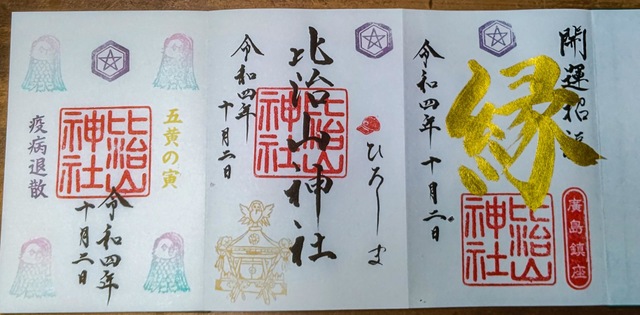 開運招
縁
廣島鎮座
比治山
神社
令和四年 十月二日
ひろしま
比治山神社
比治山
神社
令和四年
十月二日
五黄の寅
比治山
神社
令和四年
十月二日
疫病退散